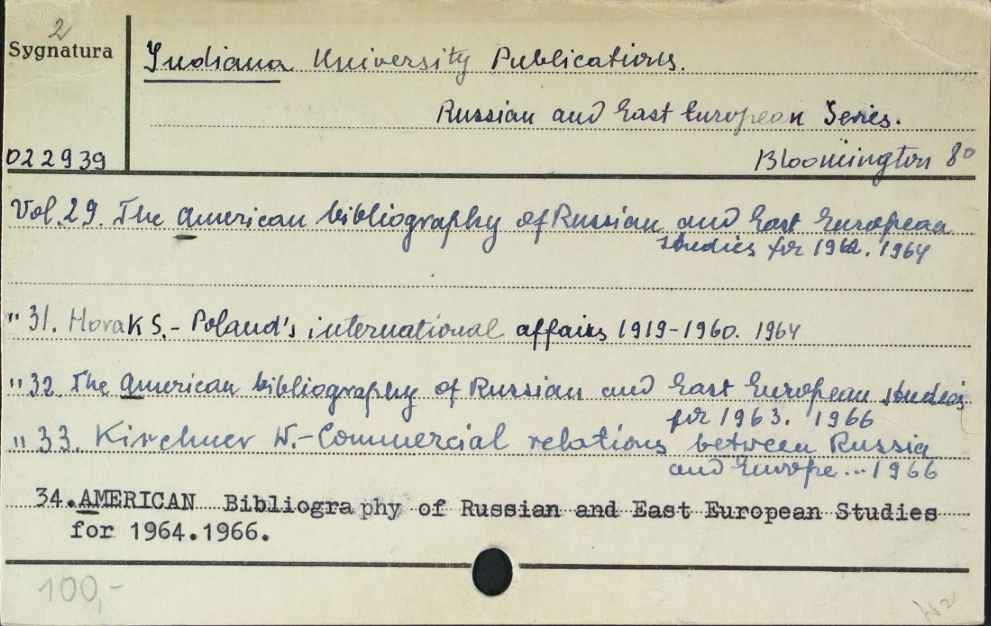 2
Sygnatura
Indiana University Publications.
Russian and East European Series.
022939
Bloomington 8º
Vol.29. The American bibliography of Russian and East European
studies for 1962. 1964
" 31. Horak S. - Poland's international affairs 1919-1960. 1964
" 32. The American bibliography of Russian and East European studies
for 1963. 1966
" 33. Kirchner W. - Commercial relations between Russia
and Europe... 1966
34.AMERICAN Bibliography of Russian and East European Studies
for 1964.1966.
100,-